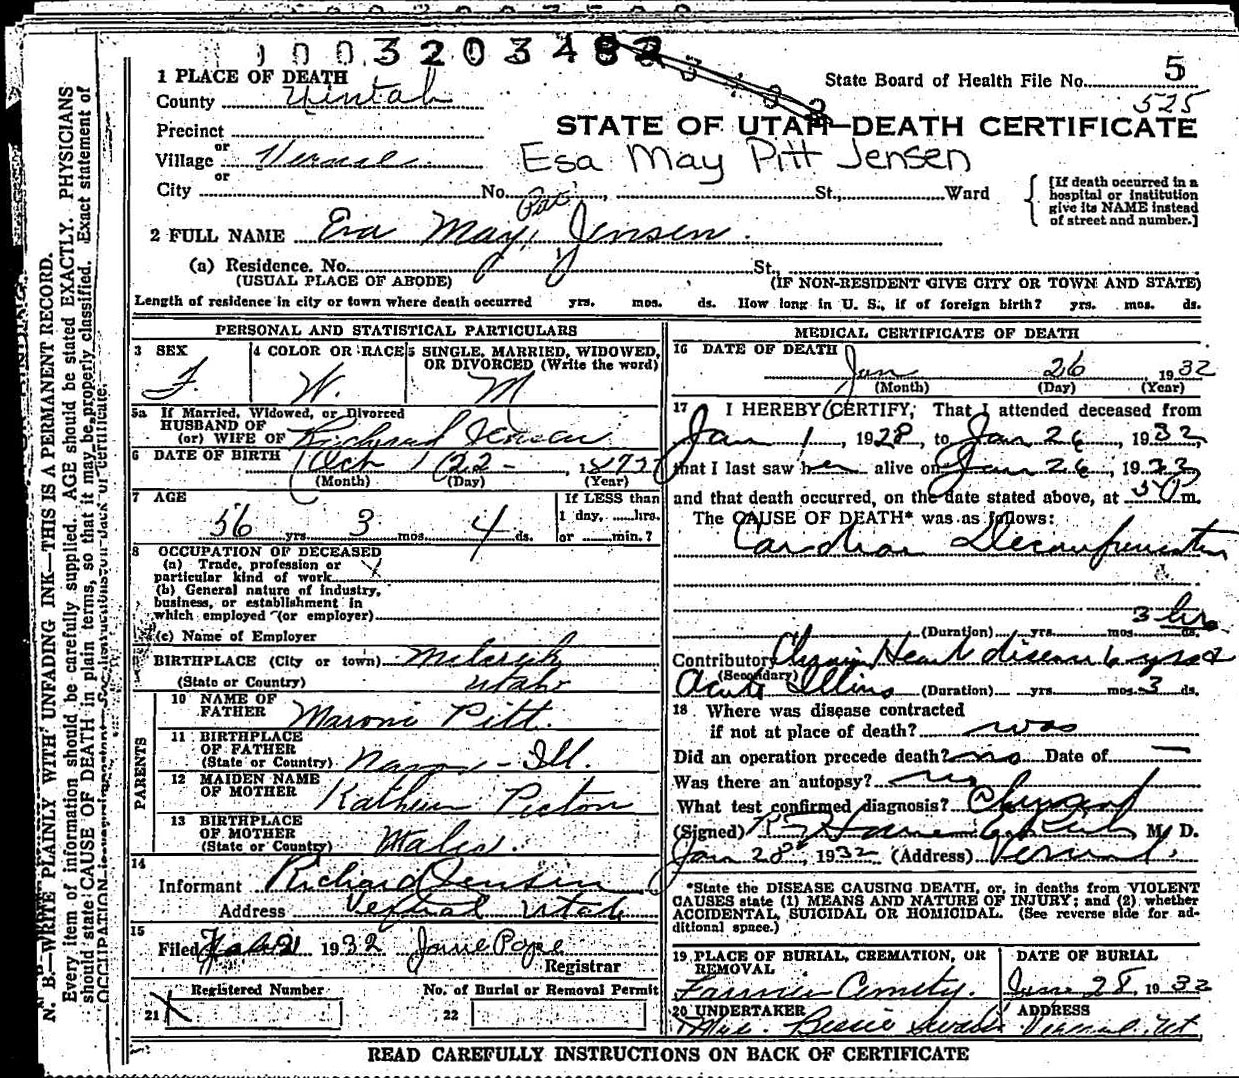 1003203482
1 PLACE OF DEATH
State Board of Health File No. 5
County Uintah
525
Precinct
STATE OF UTAH—DEATH CERTIFICATE
or
Village Vernal
Esa May Pitt Jensen
or
City No. St., Ward
[If death occurred in a
hospital or institution
give its NAME instead
of street and number.]
2 FULL NAME Eva May Jensen
(a) Residence. No. St.,
(USUAL PLACE OF ABODE) (IF NON-RESIDENT GIVE CITY OR TOWN AND STATE)
Length of residence in city or town where death occurred yrs. mos. ds. How long in U. S., if of foreign birth? yrs. mos. ds.
PERSONAL AND STATISTICAL PARTICULARS
3 SEX
F.
4 COLOR OR RACE
W.
5 SINGLE, MARRIED, WIDOWED,
OR DIVORCED (Write the word)
M
5a If Married, Widowed, or Divorced
HUSBAND OF
(or) WIFE OF Richard Jensen
6 DATE OF BIRTH Oct 22 - 1
(Month) (Day) (Year)
7 AGE
56 yrs. 3 mos. 4 ds.
If LESS than
1 day, hrs.
or min.?
8 OCCUPATION OF DECEASED
(a) Trade, profession or
particular kind of work
(b) General nature of industry,
business, or establishment in
which employed (or employer)
(c) Name of Employer
9 BIRTHPLACE (City or town)
(State or Country) Utah
PARENTS
10 NAME OF
FATHER Maroni Pitt.
11 BIRTHPLACE
OF FATHER
(State or Country) - Ill.
12 MAIDEN NAME
OF MOTHER Picton
13 BIRTHPLACE
OF MOTHER
(State or Country) Wales.
14
Informant Richard Jensen
Address Vernal Utah
15
Filed 1932 Jane Pope
Registrar
Registered Number No. of Burial or Removal Permit
21 X 22
MEDICAL CERTIFICATE OF DEATH
16 DATE OF DEATH Jan 26 1932
(Month) (Day) (Year)
17 I HEREBY CERTIFY, That I attended deceased from
Jan 1, 1928, to Jan 26, 1932
that I last saw her alive on Jan 26, 19
and that death occurred, on the date stated above, at m.
The CAUSE OF DEATH* was as follows:
Cardiac Decompensation
3 hrs
(Duration) yrs. mos. ds.
Contributory Chronic Heart disease 6 yrs &
(Secondary)
Acute Illness (Duration) yrs. mos. 3 ds.
18 Where was disease contracted
if not at place of death?
Did an operation precede death? no Date of —
Was there an autopsy? no
What test confirmed diagnosis?
(Signed) M. D.
Jan 28th, 1932 (Address) Vernal.
*State the DISEASE CAUSING DEATH, or, in deaths from VIOLENT
CAUSES state (1) MEANS AND NATURE OF INJURY; and (2) whether
ACCIDENTAL, SUICIDAL OR HOMICIDAL. (See reverse side for ad-
ditional space.)
19 PLACE OF BURIAL, CREMATION, OR
REMOVAL
Cemetry.
DATE OF BURIAL
28, 1932
20 UNDERTAKER
Mrs. Bessie
ADDRESS
Vernal, Ut
READ CAREFULLY INSTRUCTIONS ON BACK OF CERTIFICATE
N. B.—WRITE PLAINLY WITH UNFADING INK—THIS IS A PERMANENT RECORD.
Every item of information should be carefully supplied. AGE should be stated EXACTLY. PHYSICIANS
should state CAUSE OF DEATH in plain terms, so that it may be properly classified. Exact statement of